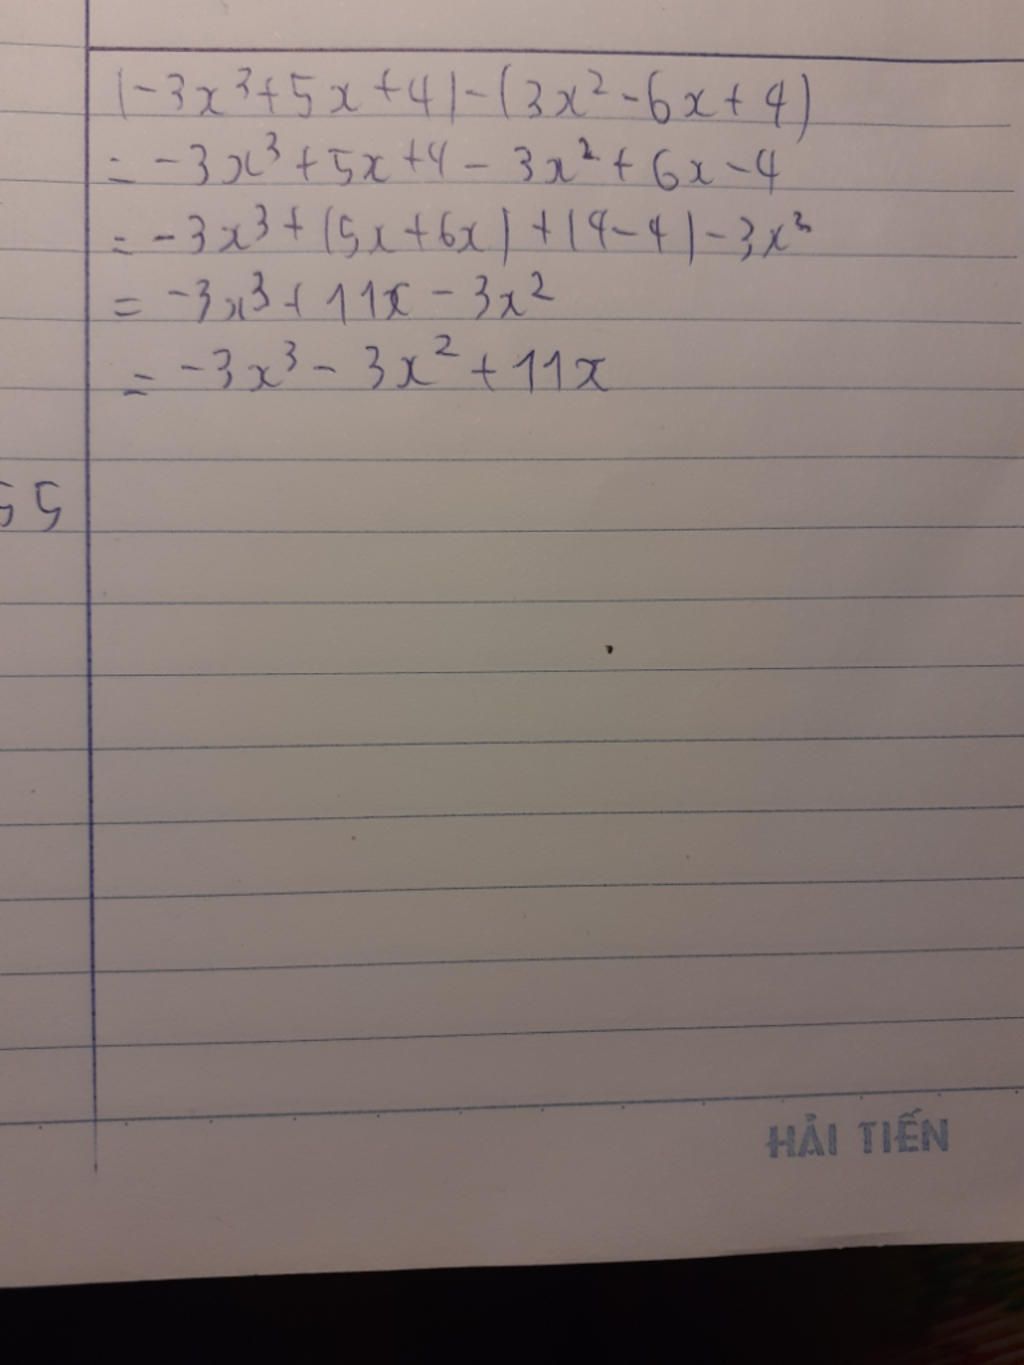 (-3x³+5x+4)-(3x²-6x+4)
= -3x³+5x+4-3x²+6x-4
= -3x³+(5x+6x)+(4-4)-3x²
= -3x³+11x-3x²
= -3x³-3x²+11x
55
HẢI TIẾN